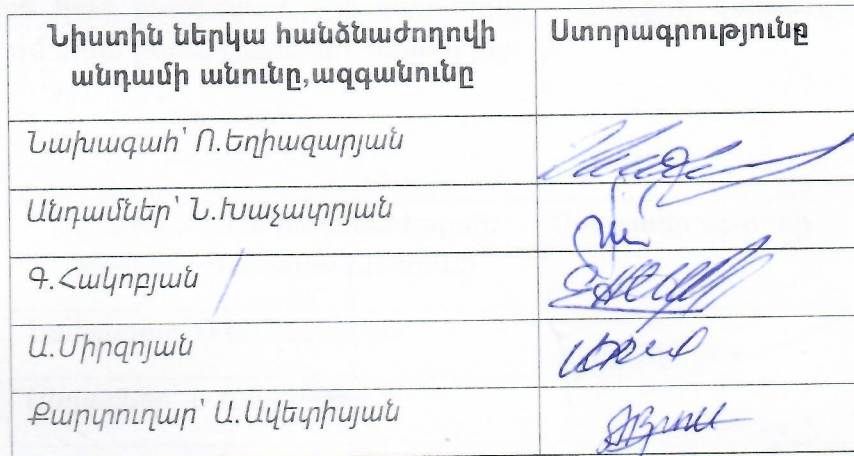 Նիստին ներկա հանձնաժողովի
անդամի անունը,ազգանունը
Ստորագրությունը
Նախագահ՝ Ո.Եղիազարյան
Անդամներ՝ Ն.Խաչատրյան
Գ.Հակոբյան
Ա.Միրզոյան
Քարտուղար՝ Ա.Ավետիսյան